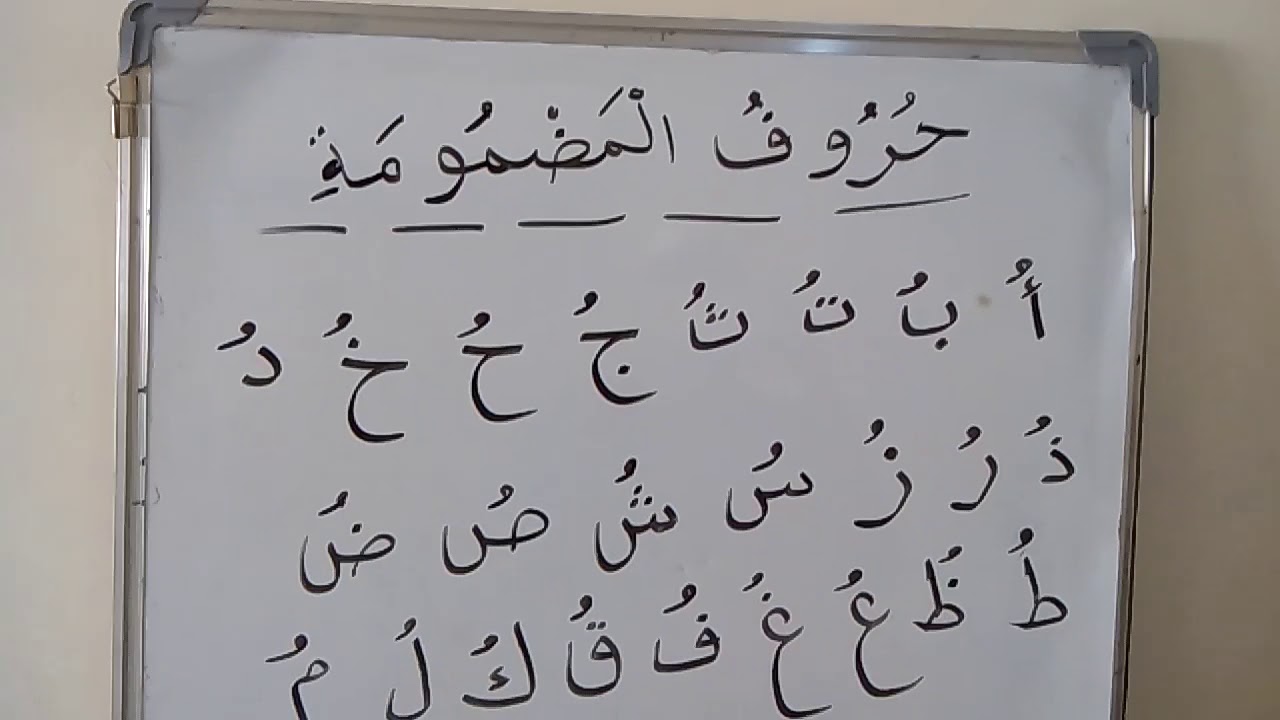 حُرُوفُ الْمَضْمُومَةِ
أُ بُ تُ ثُ جُ حُ خُ دُ
ذُ رُ زُ سُ شُ صُ ضُ
طُ ظُ عُ غُ فُ قُ كُ لُ مُ